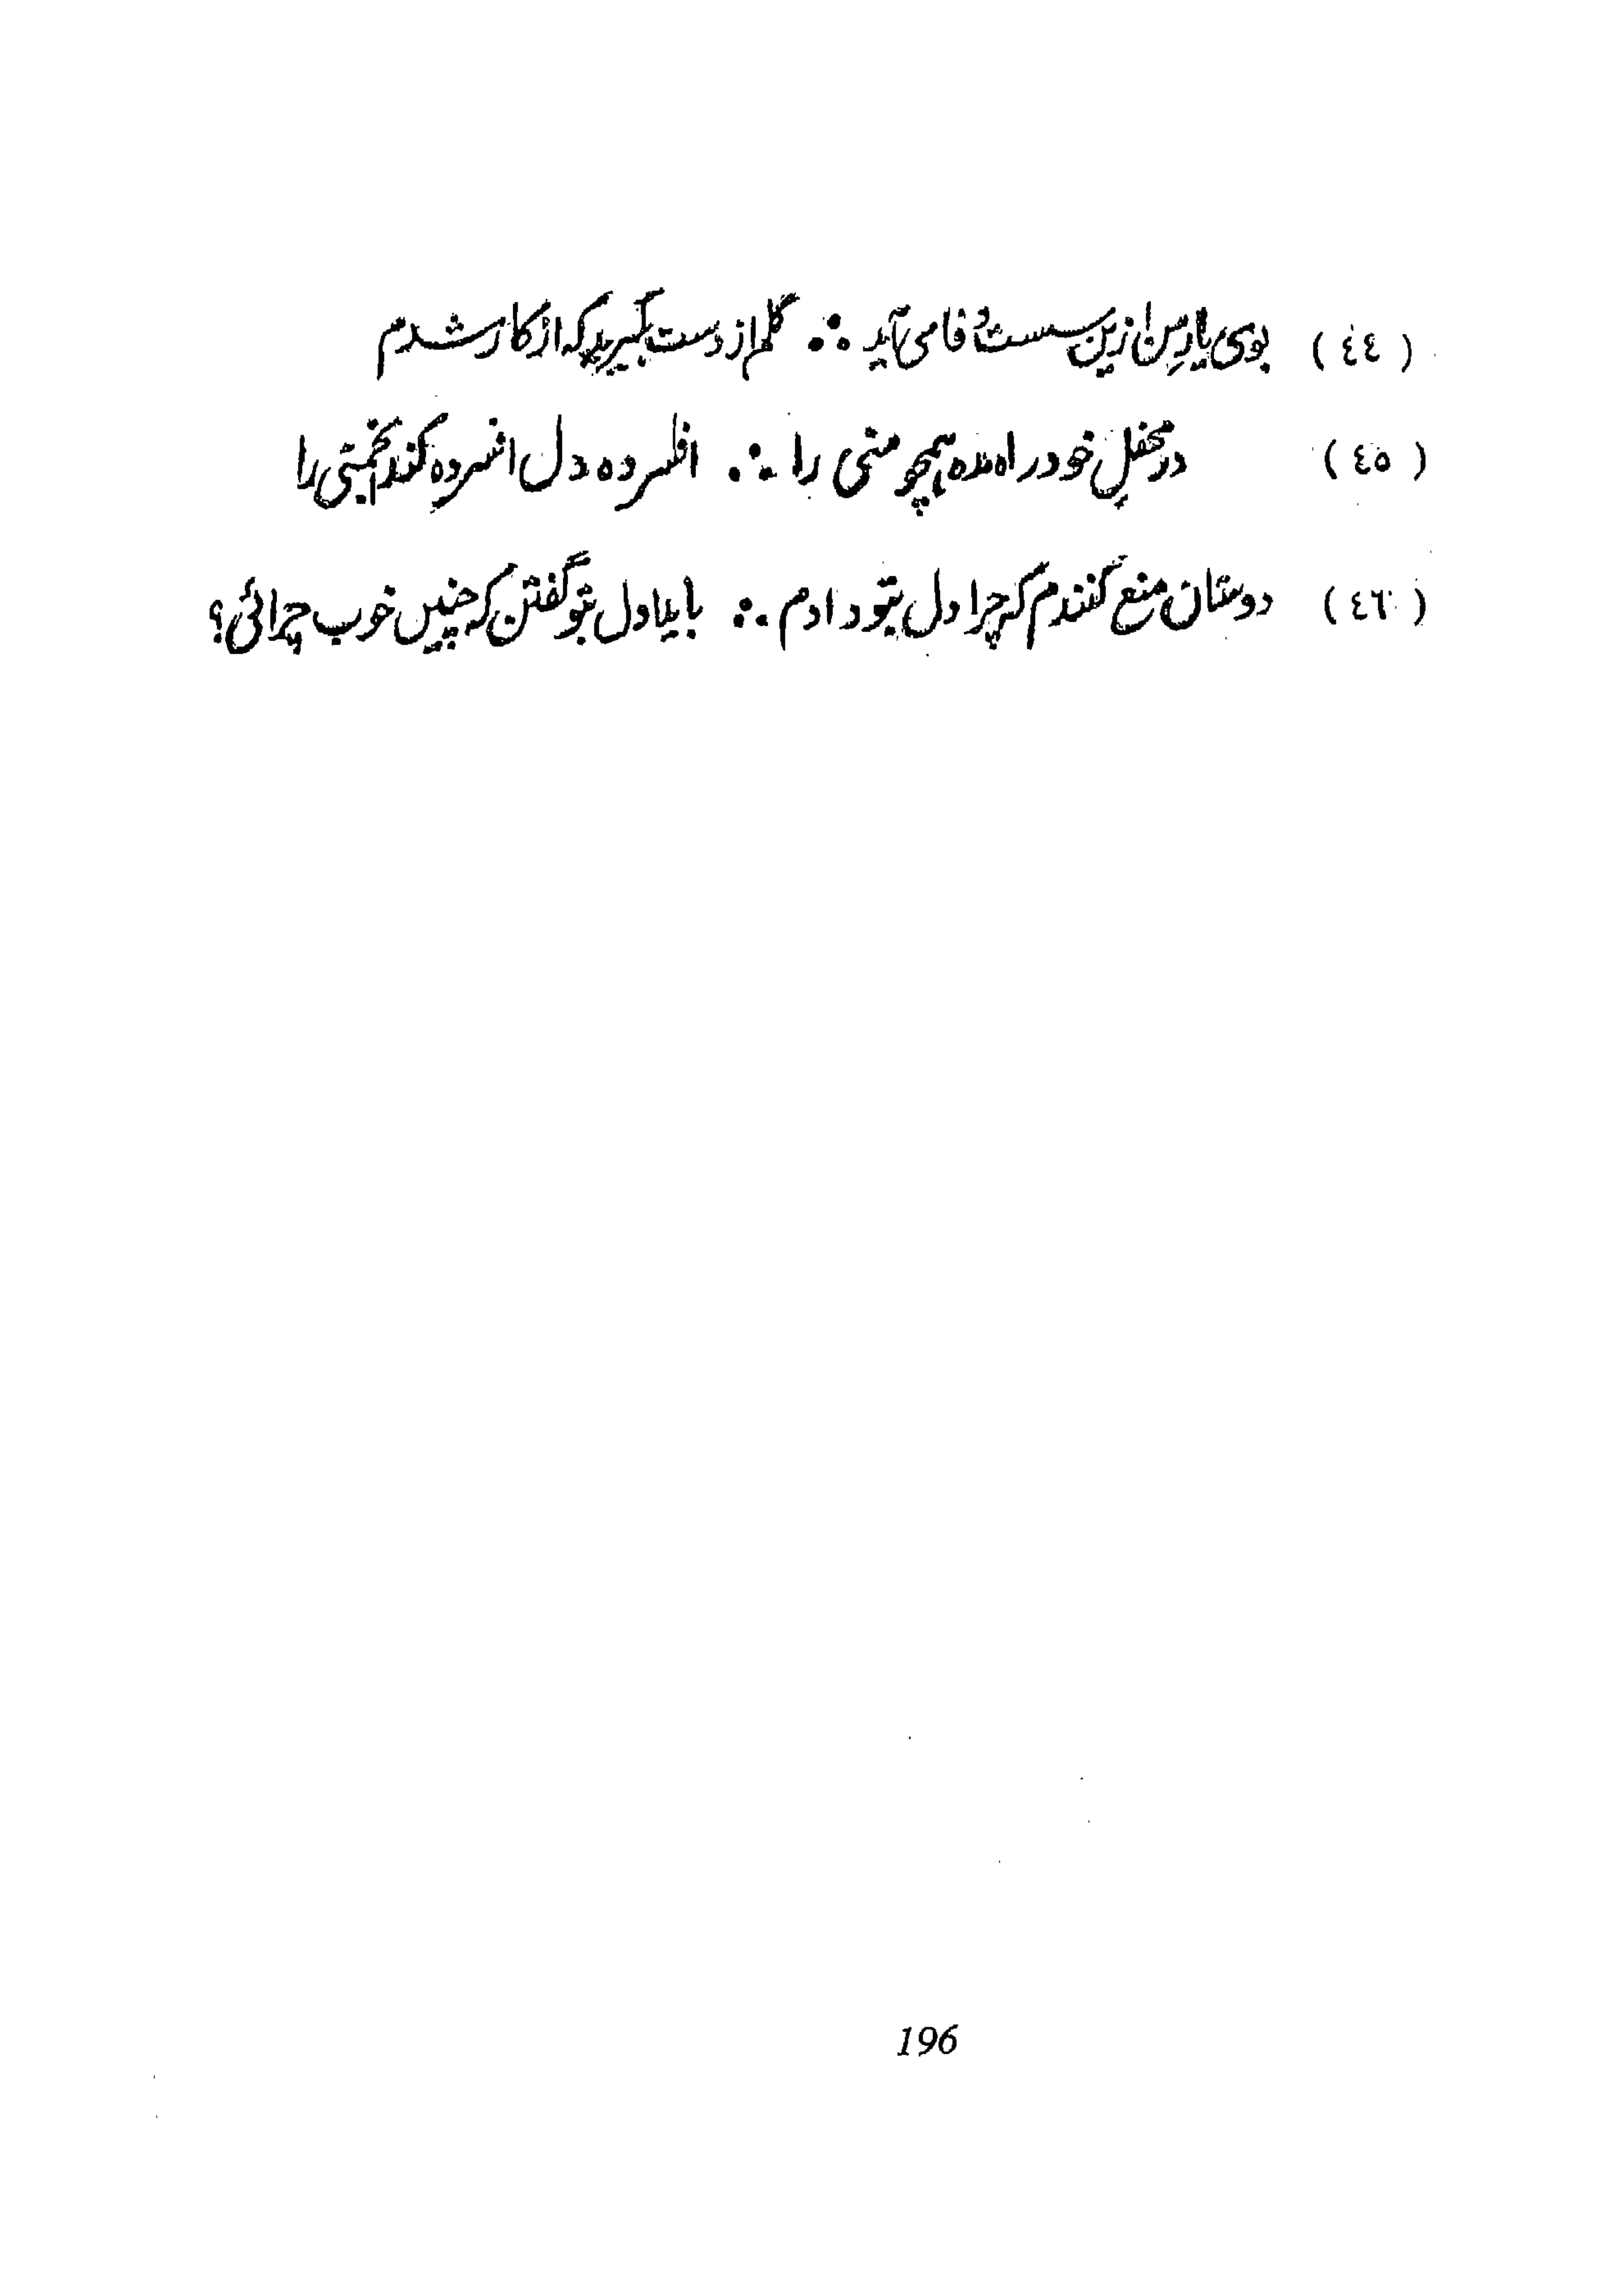 (٤٤) بوی یارِ من ازین سست وفا می آید ∴ گلم از دست بگیرید که از کار شدم
(٤٥) در محفلِ خود راه مده همچو منی را ∴ افسرده دل افسرده کند انجمنی را
(٤٦) دوستان منع کنندم که چرا دل بتو دادم ∴ باید اول بتو گفتن که چنیں خوب چرائی؟
196